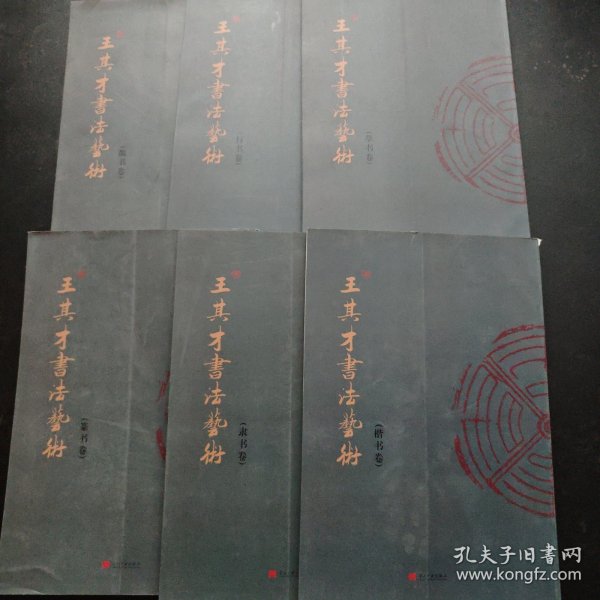 王其才書法藝術
(魏书卷)
王其才書法藝術
(行书卷)
王其才書法藝術
(草书卷)
王其才書法藝術
(篆书卷)
王其才書法藝術
(隶书卷)
王其才書法藝術
(楷书卷)
孔夫子旧書网
www.kongfz.com